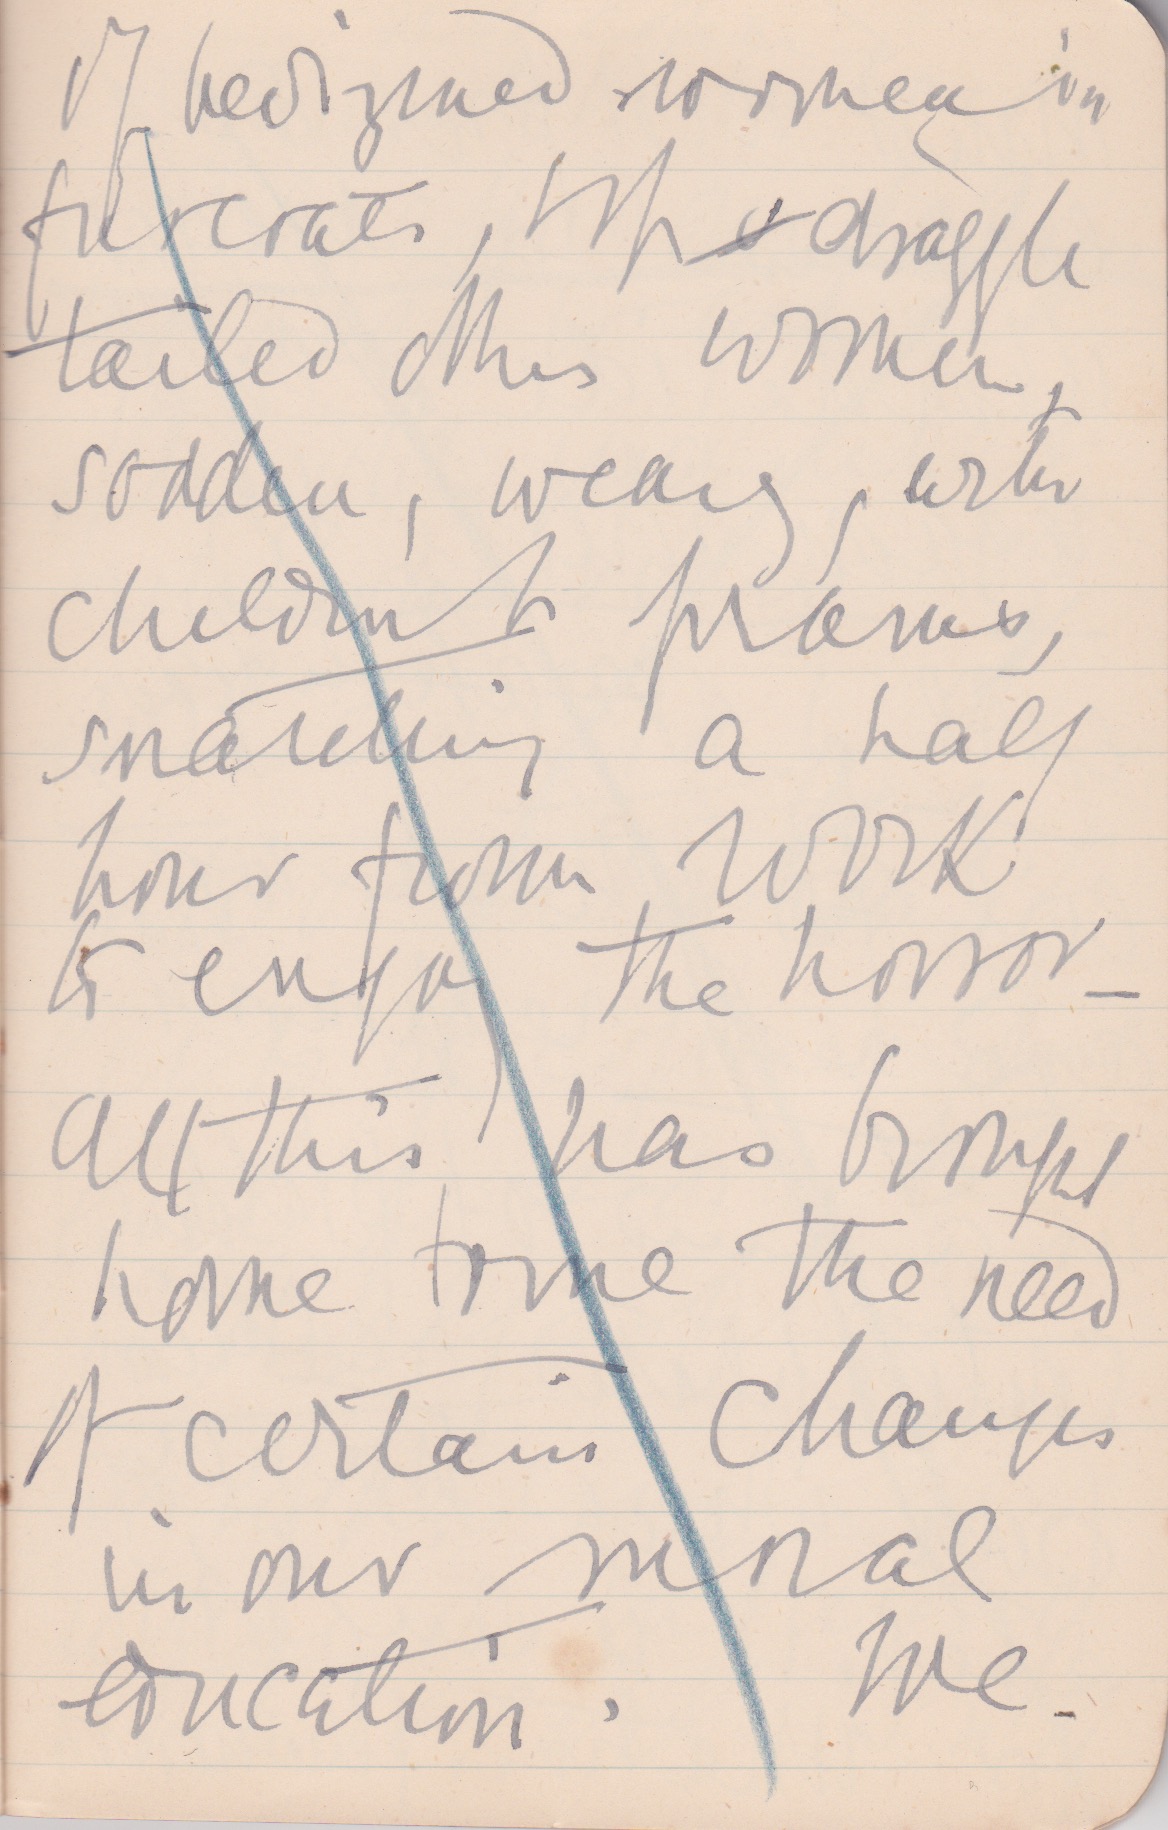 of bedizened women in
fur coats, & draggle
tailed other women,
sodden, weary, with
children & prams,
snatching a half
hour from work
to enjoy the horror _
All this has brought
home to me the need
of certain changes
in our moral
education. We